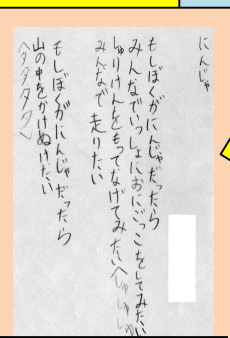 にんじゃ
もしぼくがにんじゃだったら
みんなでいっしょにおにごっこをしてみたい
しゅりけんをもってなげてみたい〈しゅしゅしゅ
みんなで 走りたい
もしぼくがにんじゃだったら
山の中をかけぬけたい
〈タタタタタ〉